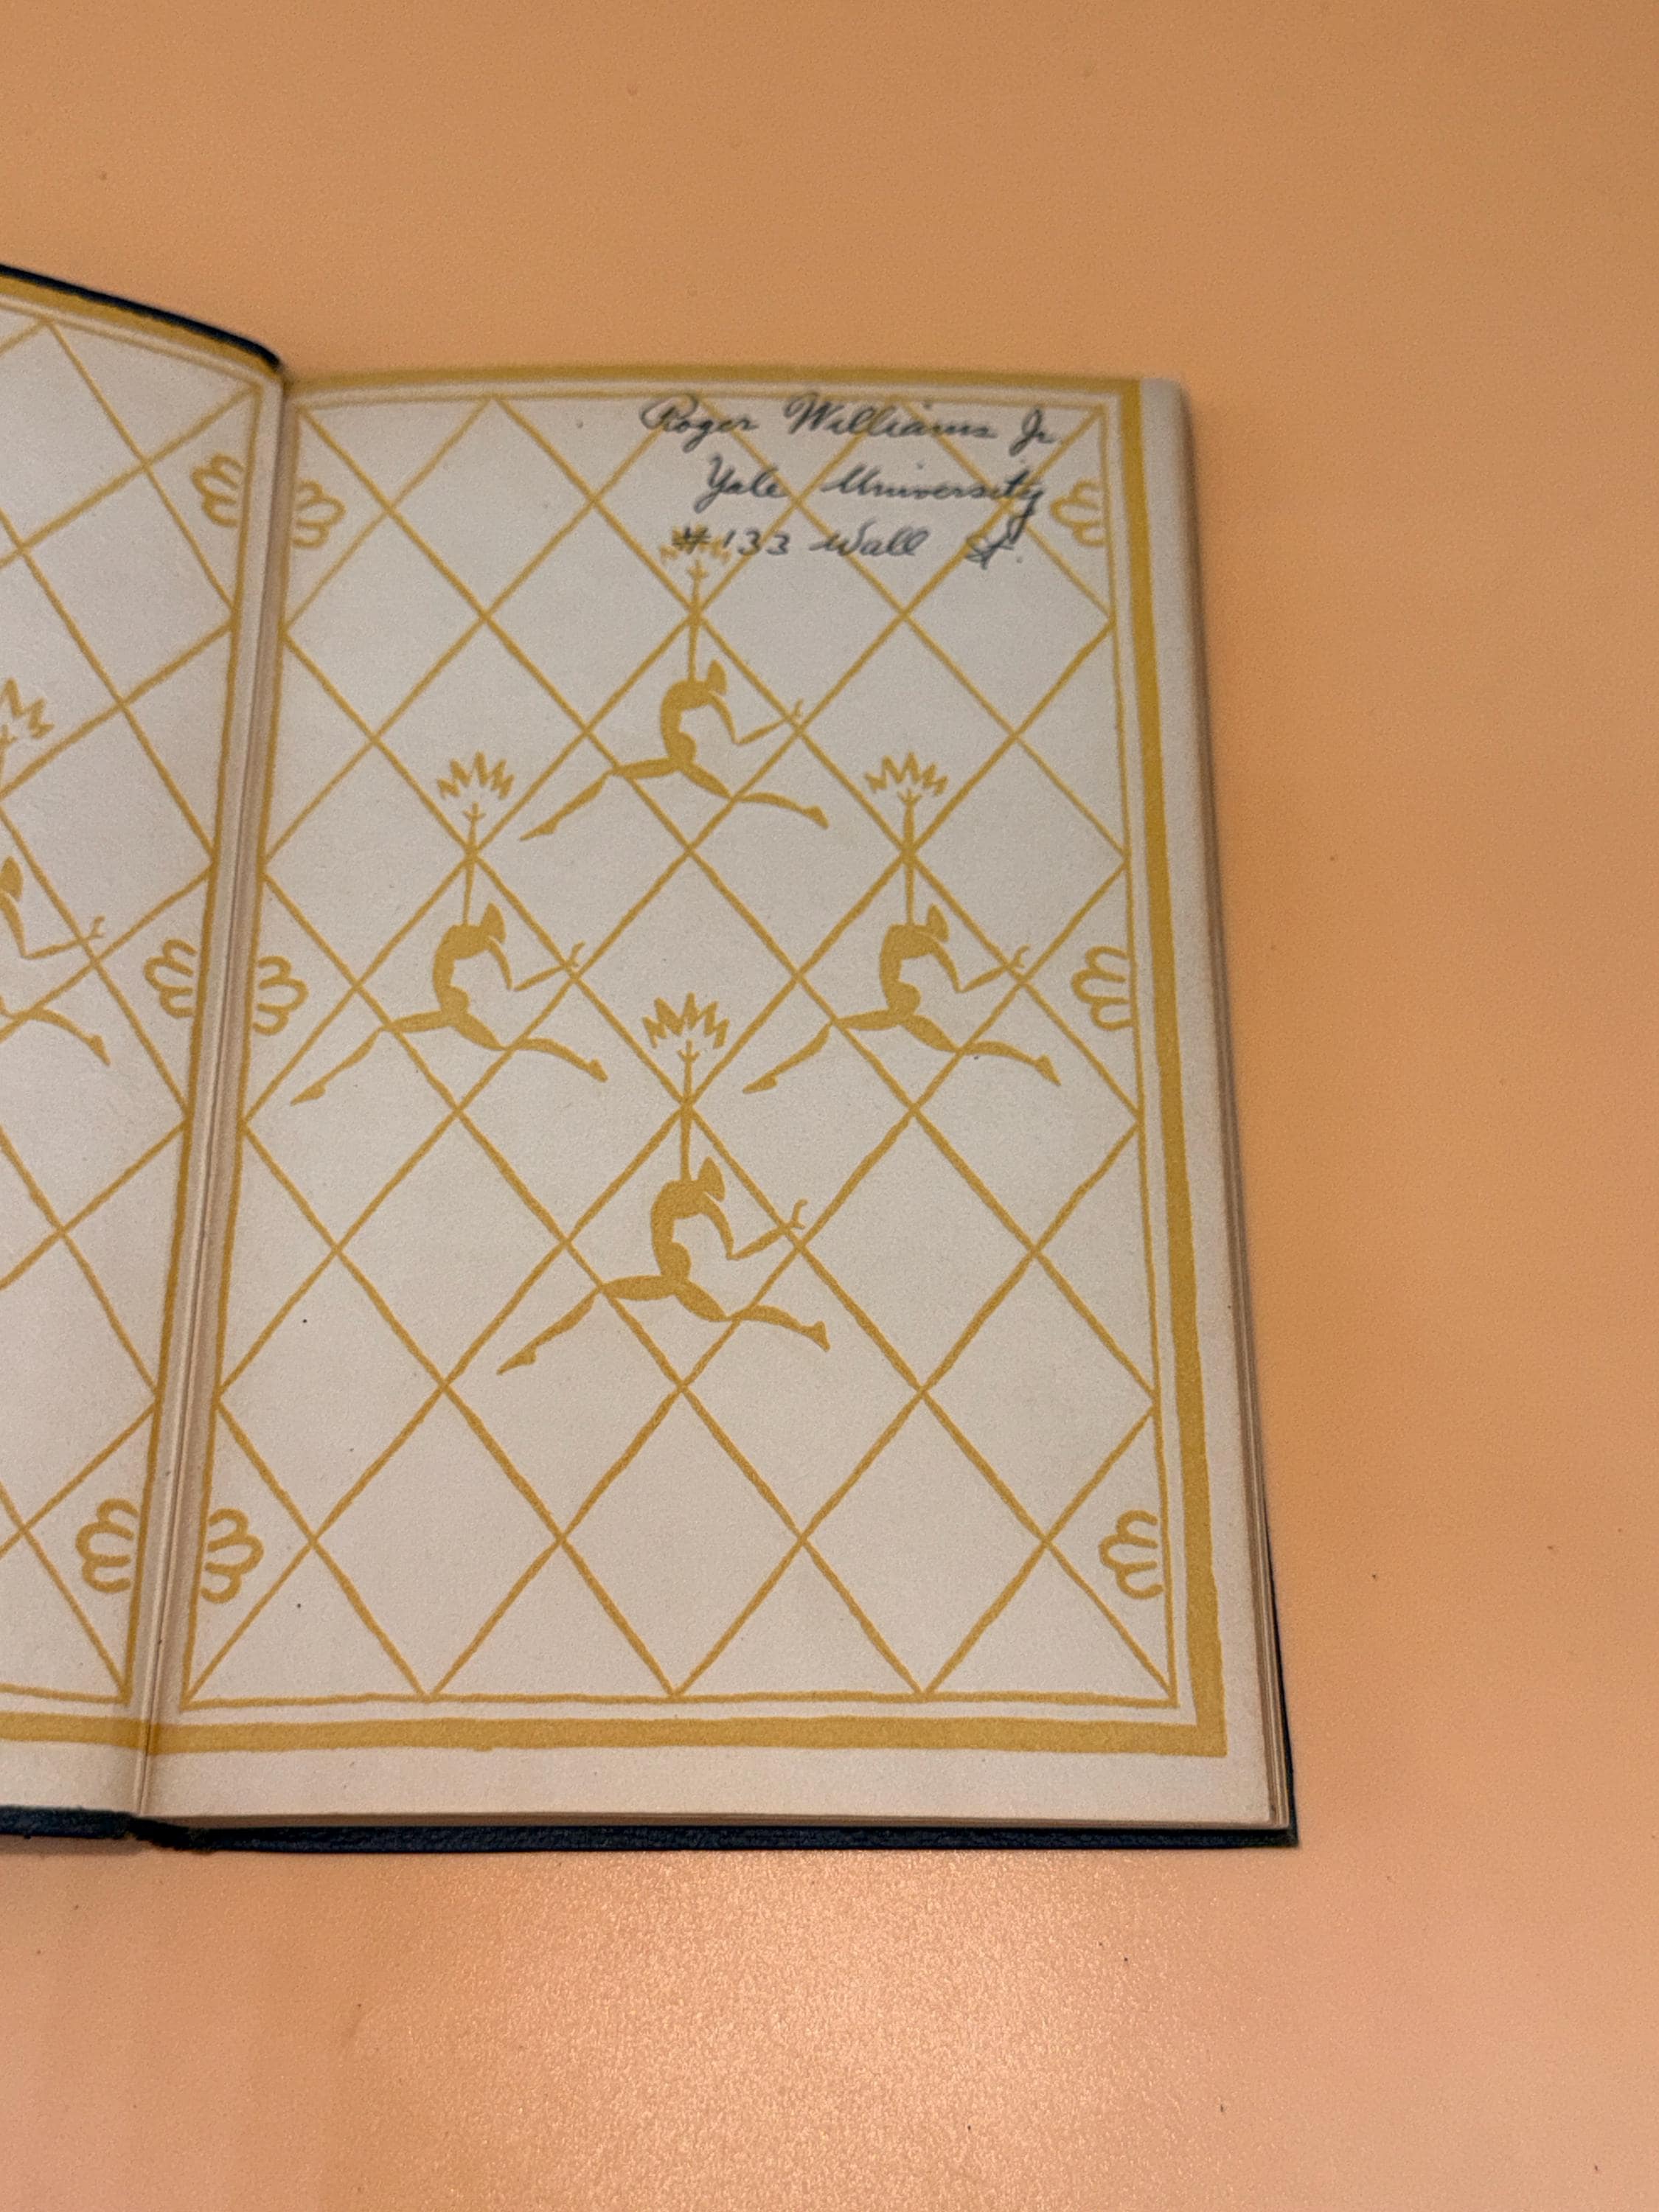 Roger Williams Jr.
Yale University
#133 Wall St.